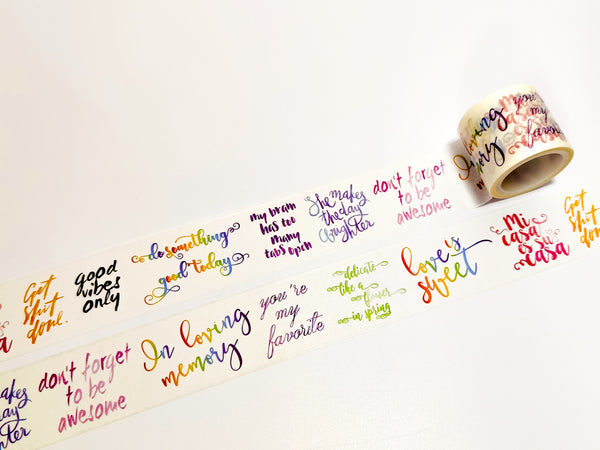 a
Got
sh*t
done.
good
vibes
only
do something
good today
my brain
has too
many
tabs open
She makes
the day
brighter
don't forget
to be
awesome
In loving
memory
you're
my
favor
makes
day
hter
don't forget
to be
awesome
In loving
memory
you're
my
favorite
delicate
like a
flower
in spring
love is
sweet
Mi
casa
es su
casa
Got
sh*t
done.